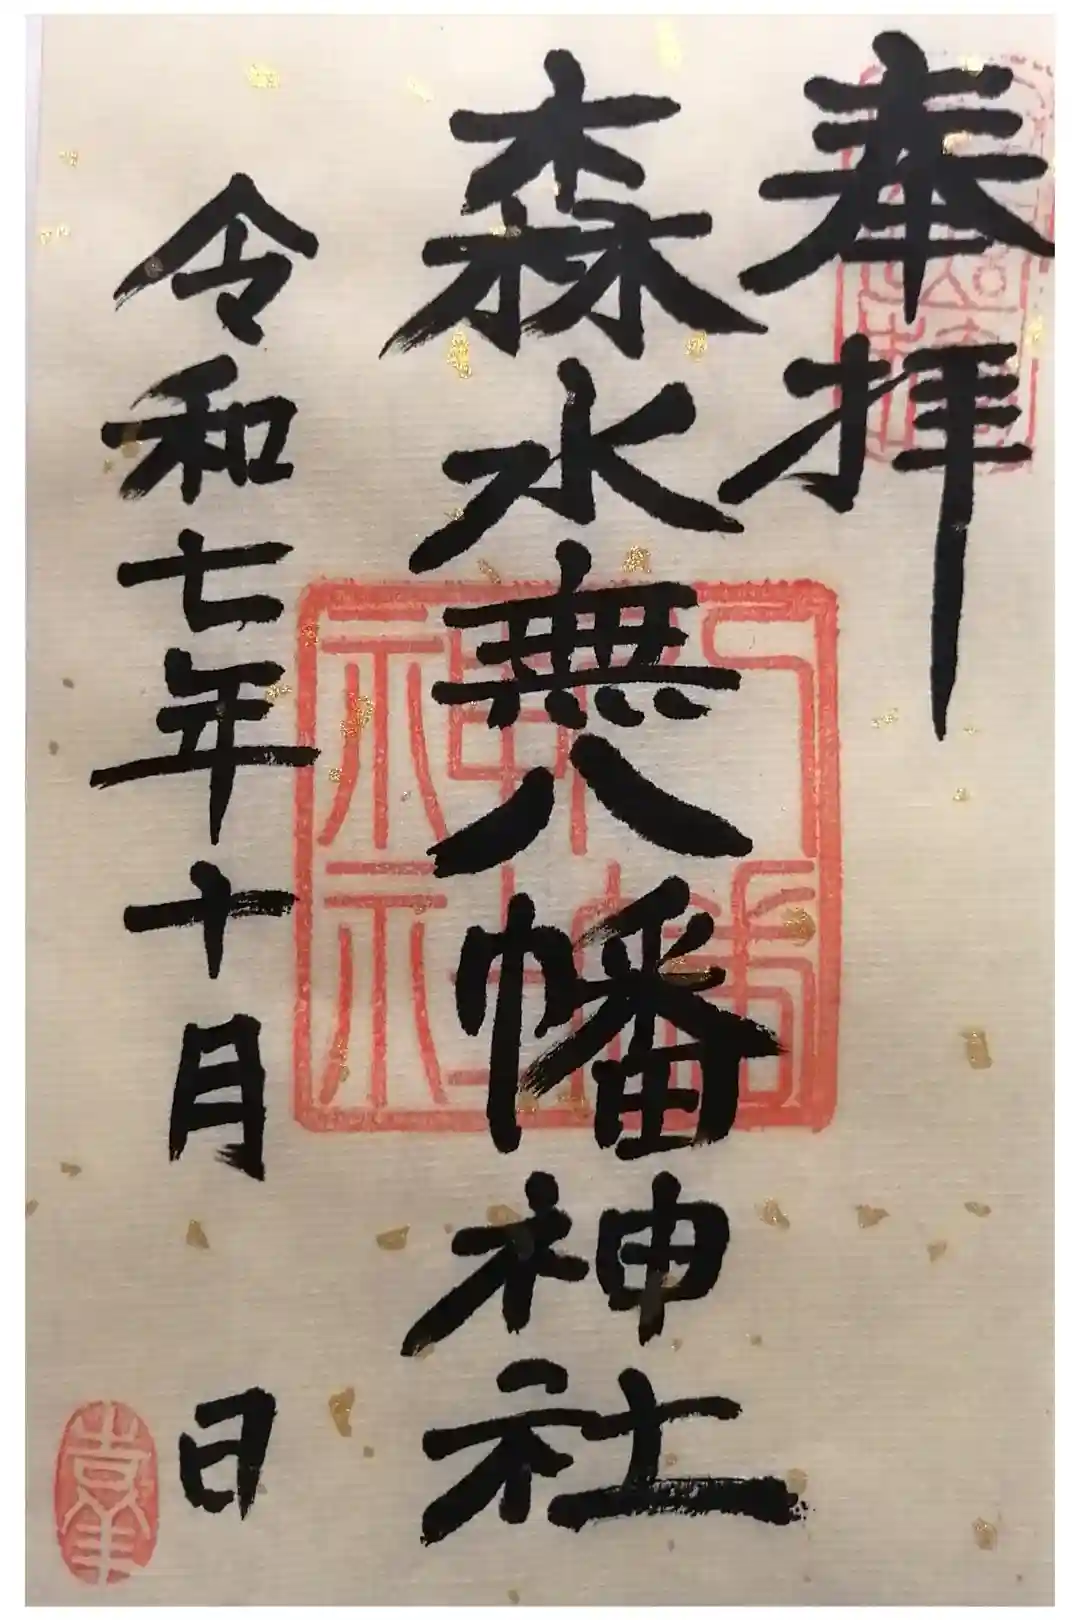 奉拝
森水無八幡神社
令和七年十月 日
八幡
神社